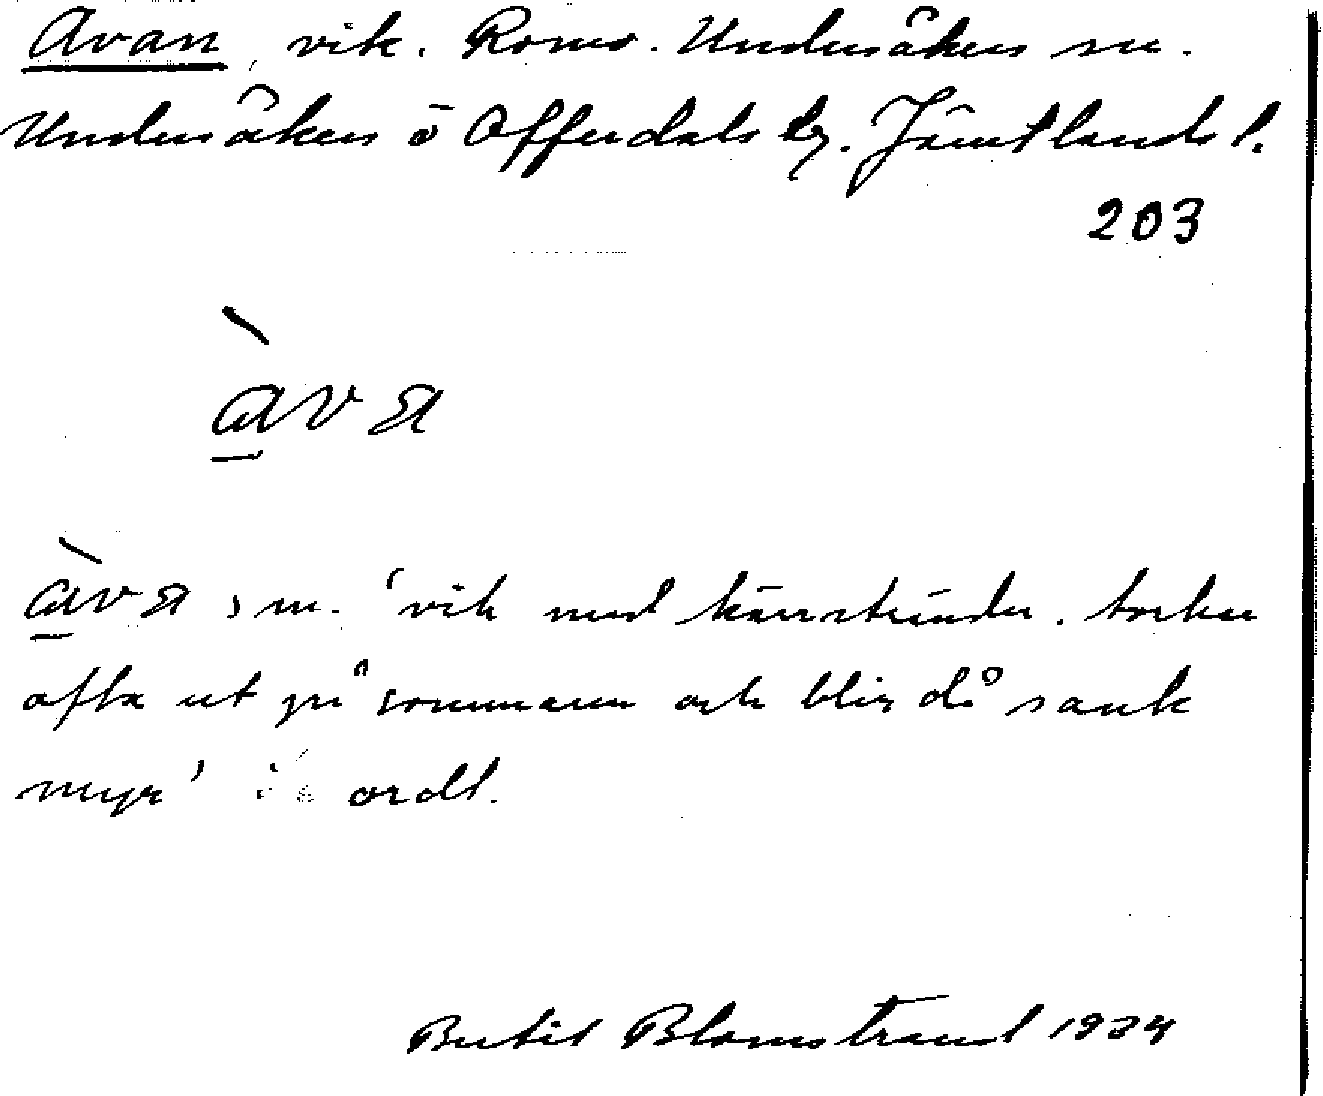 Avan, vik. Romo. Undersåkers sn.
Undersåkers o Offerdals tg. Jämtlands l.
203
àva
àva, m. 'vik med kärrstränder. torkar
ofta ut på sommaren och blir då sank
myr' ordl.
Bertil Blomstrand 1934